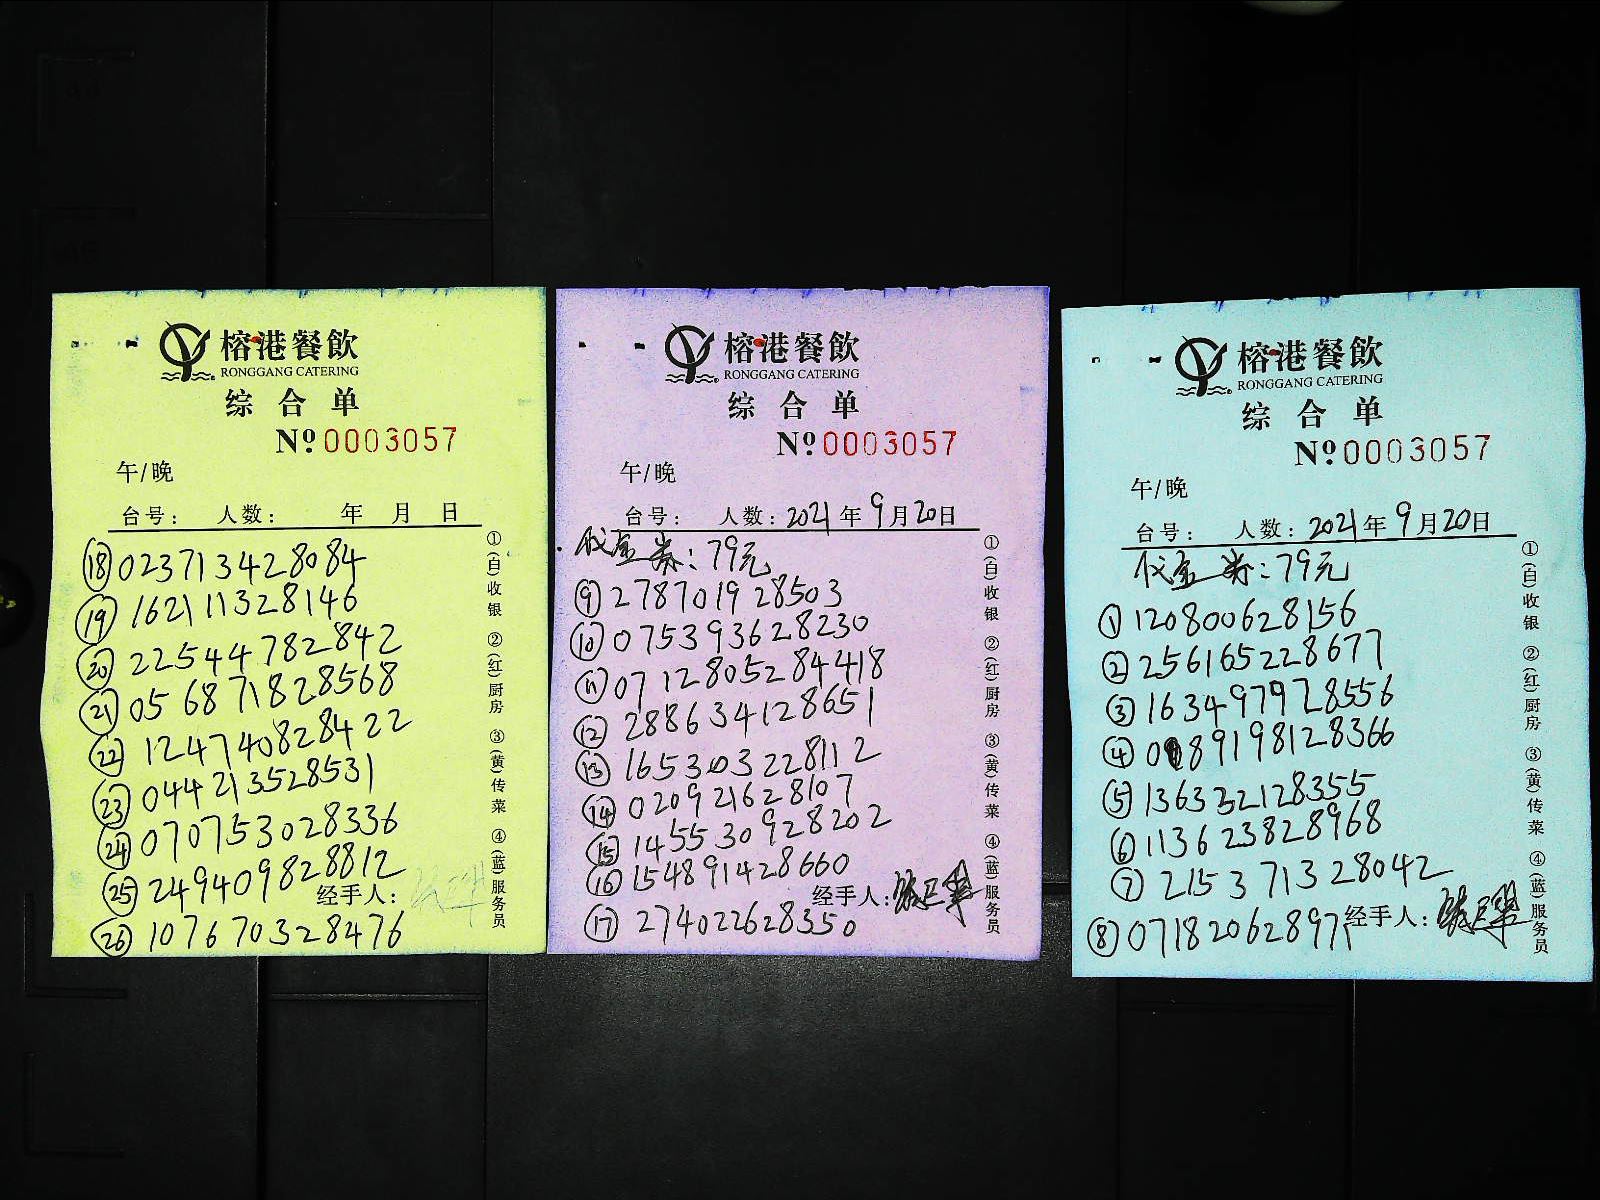 榕港餐飲
RONGGANG CATERING
综合单
№0003057
午/晚
台号： 人数： 年 月 日
⑱023713428084
⑲162111328146
⑳225444782842
㉑056871828568
㉒124740828422
㉓044213528531
㉔070753028336
㉕249409828812
经手人：
㉖107670328476
①(白)收银 ②(红)厨房 ③(黄)传菜 ④(蓝)服务员
榕港餐飲
RONGGANG CATERING
综合单
№0003057
午/晚
台号： 人数：2021年9月20日
代金券：79元
⑨278701928503
⑩075393628230
⑪0712805284418
⑫288634128651
⑬165303228112
⑭020921628107
⑮145530928202
⑯154891428660
经手人：
⑰274022628350
①(白)收银 ②(红)厨房 ③(黄)传菜 ④(蓝)服务员
榕港餐飲
RONGGANG CATERING
综合单
№0003057
午/晚
台号： 人数：2021年9月20日
代金券：79元
①120800628156
②256165228677
③163497928556
④089198128366
⑤136332128355
⑥113623828968
⑦215371328042
⑧071820628971
经手人：
①(白)收银 ②(红)厨房 ③(黄)传菜 ④(蓝)服务员